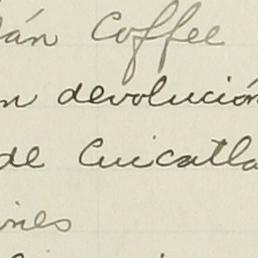 án Coffee
n devolución
de Cuicatla
ines